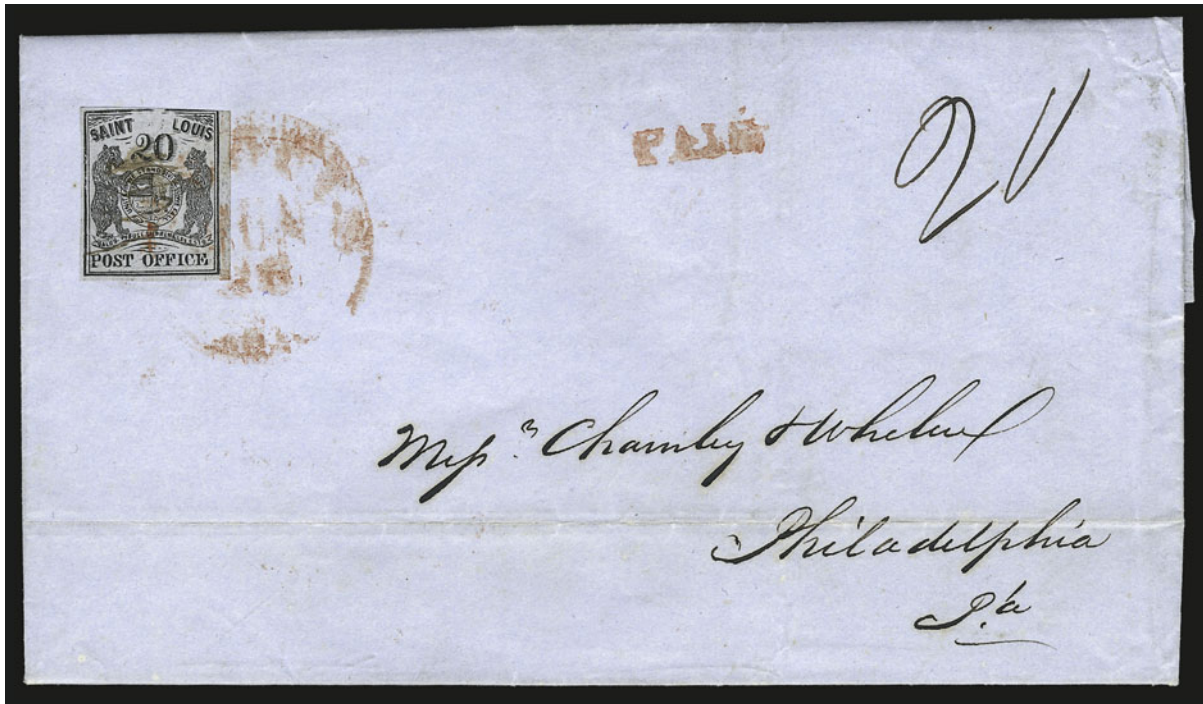 SAINT LOUIS
20
POST OFFICE
PAID
20
Mess.rs Chambly & Whelen
Philadelphia
Pa